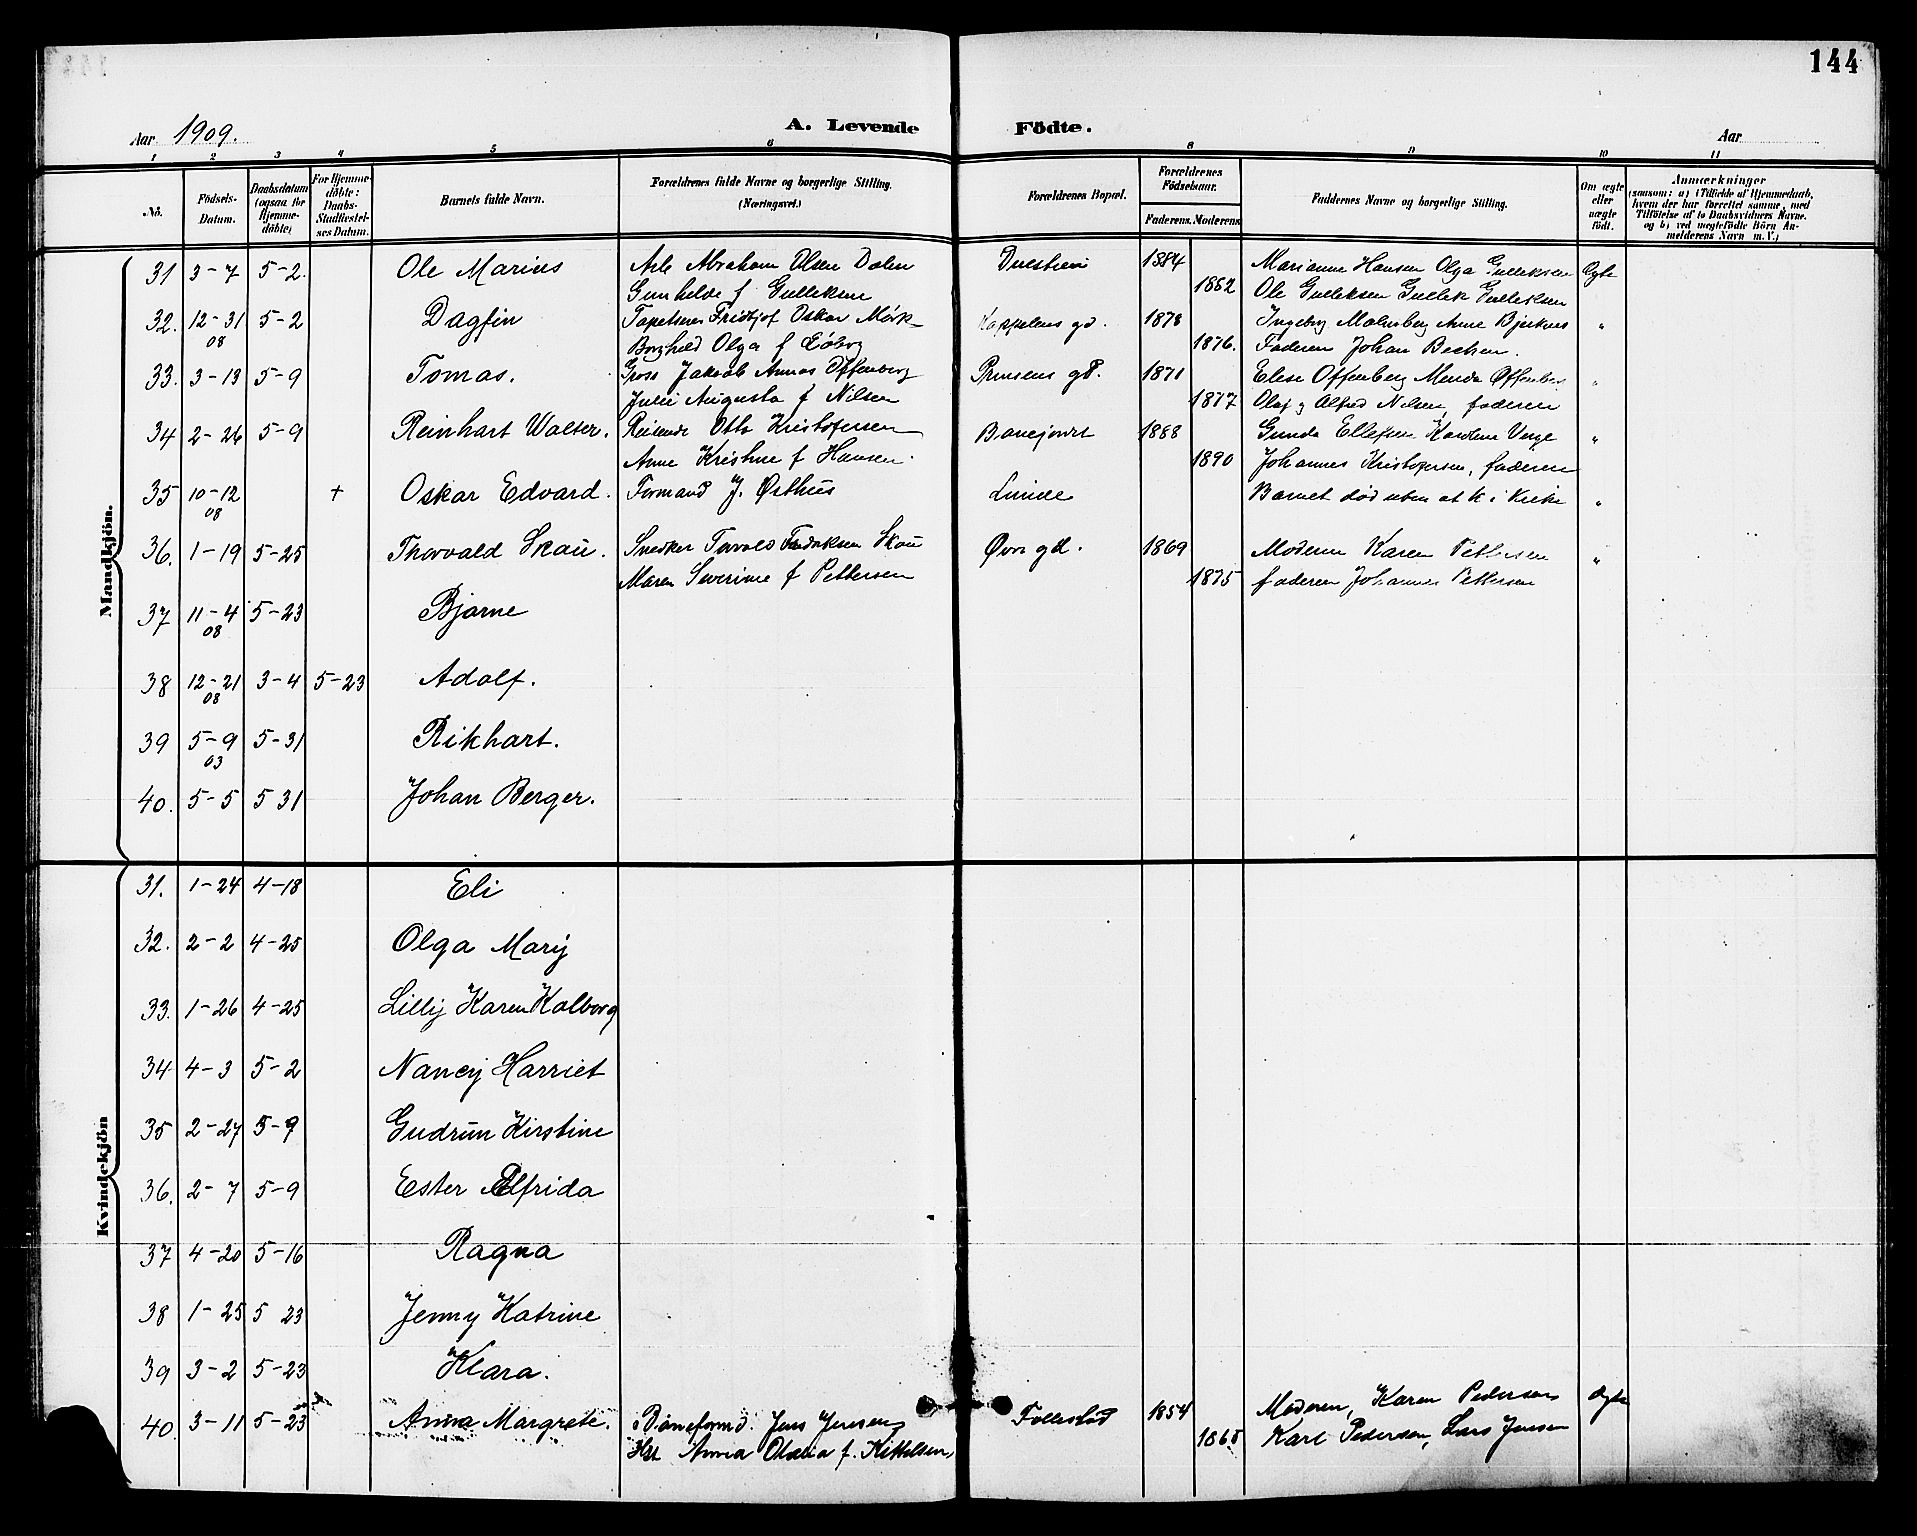 144
Aar 1909.
A. Levende Födte.
Aar
1 2 3 4 5 6 8 9 10 11
No.
Födsels-Datum.
Daabsdatum (ogsaa for Hjemmedöbte)
For Hjemmedöbte: Daabs-Stadfæstelses Datum.
Barnets fulde Navn.
Forældrenes fulde Navne og borgerlige Stilling. (Næringsvei.)
Forældrenes Bopæl.
Forældrenes Födselsaar.
Faderens. Moderens.
Faddernes Navne og borgerlige Stilling.
Om ægte eller uægte födt.
Anmærkninger
(saasom: a) i Tilfælde af Hjemmedaab, hvem der har forrettet samme, med Tilföielse af to Daabsvidners Navne. og b) ved uægtefödte Börn Anmelderens Navn m. V.)
Mandkjön.
31 3-7 5-2. Ole Marius Abraham Olsen Dalen 1884 Marianne Hansen Olga Gulleksen Ægte
Gunhilde f Gulleksen 1882 Ole Gulleksen Gullek Gulleksen
32. 12-31 5-2 Dagfin Tapetserer Fridtjof Oskar Mörk Kappelens gd. 1878 Ingeborg Malmberg Anne "
08 Borghild Olga f 1876. Faderen Johan
33. 3-13 5-9 Tomas. Gross Jakob Offenberg Prinsens gd. 1871 Elise Offenberg Offenberg "
Julie Augusta f Nilsen 1877 Olaf g Alfred Nilsen, faderen
34 2-26 5-9 Reinhart Walter. Reisende Otto Kristofersen 1888 Gunda Ellefsen "
Anne Kristine f Hansen. 1890 Johannes Kristofersen, faderen
35 10-12 + Oskar Edvard. Formand J. Østhus Linde Barnet död uden at k i Kirke "
08
36. 1-19 5-25 Thorvald Skau. Snedker Skau Øvre gd. 1869 Moderen Karen Pettersen "
Maren Severine f Pettersen 1875 faderen Johannes Pettersen
37 11-4 5-23 Bjarne
08
38 12-21 3-4 5-23 Adolf.
08
39 5-9 5-31 Rikhart.
03
40. 5-5 5 31 Johan Berger.
Kvindekjön
31. 1-24 4-18 Eli
32. 2-2 4-25 Olga Marij
33. 1-26 4-25 Lillij Karen Kalborg
34. 4-3 5-2 Nancij Harriet
35 2-27 5-9 Gudrun Kirstine
36. 2-7 5-9 Ester Alfrida
37 4-20 5-16 Ragna
38 1-25 5 23 Jenny Katrine
39 3-2 5-23 Klara.
40. 3-11 5-23 Anna Margrete. Baneformd. Jens Jensen Follestad 1854 Moderen, Karen Pedersen Ægte
Hst Anna f. Kittelsen, 1865 Karl Pedersen, Lars Jensen